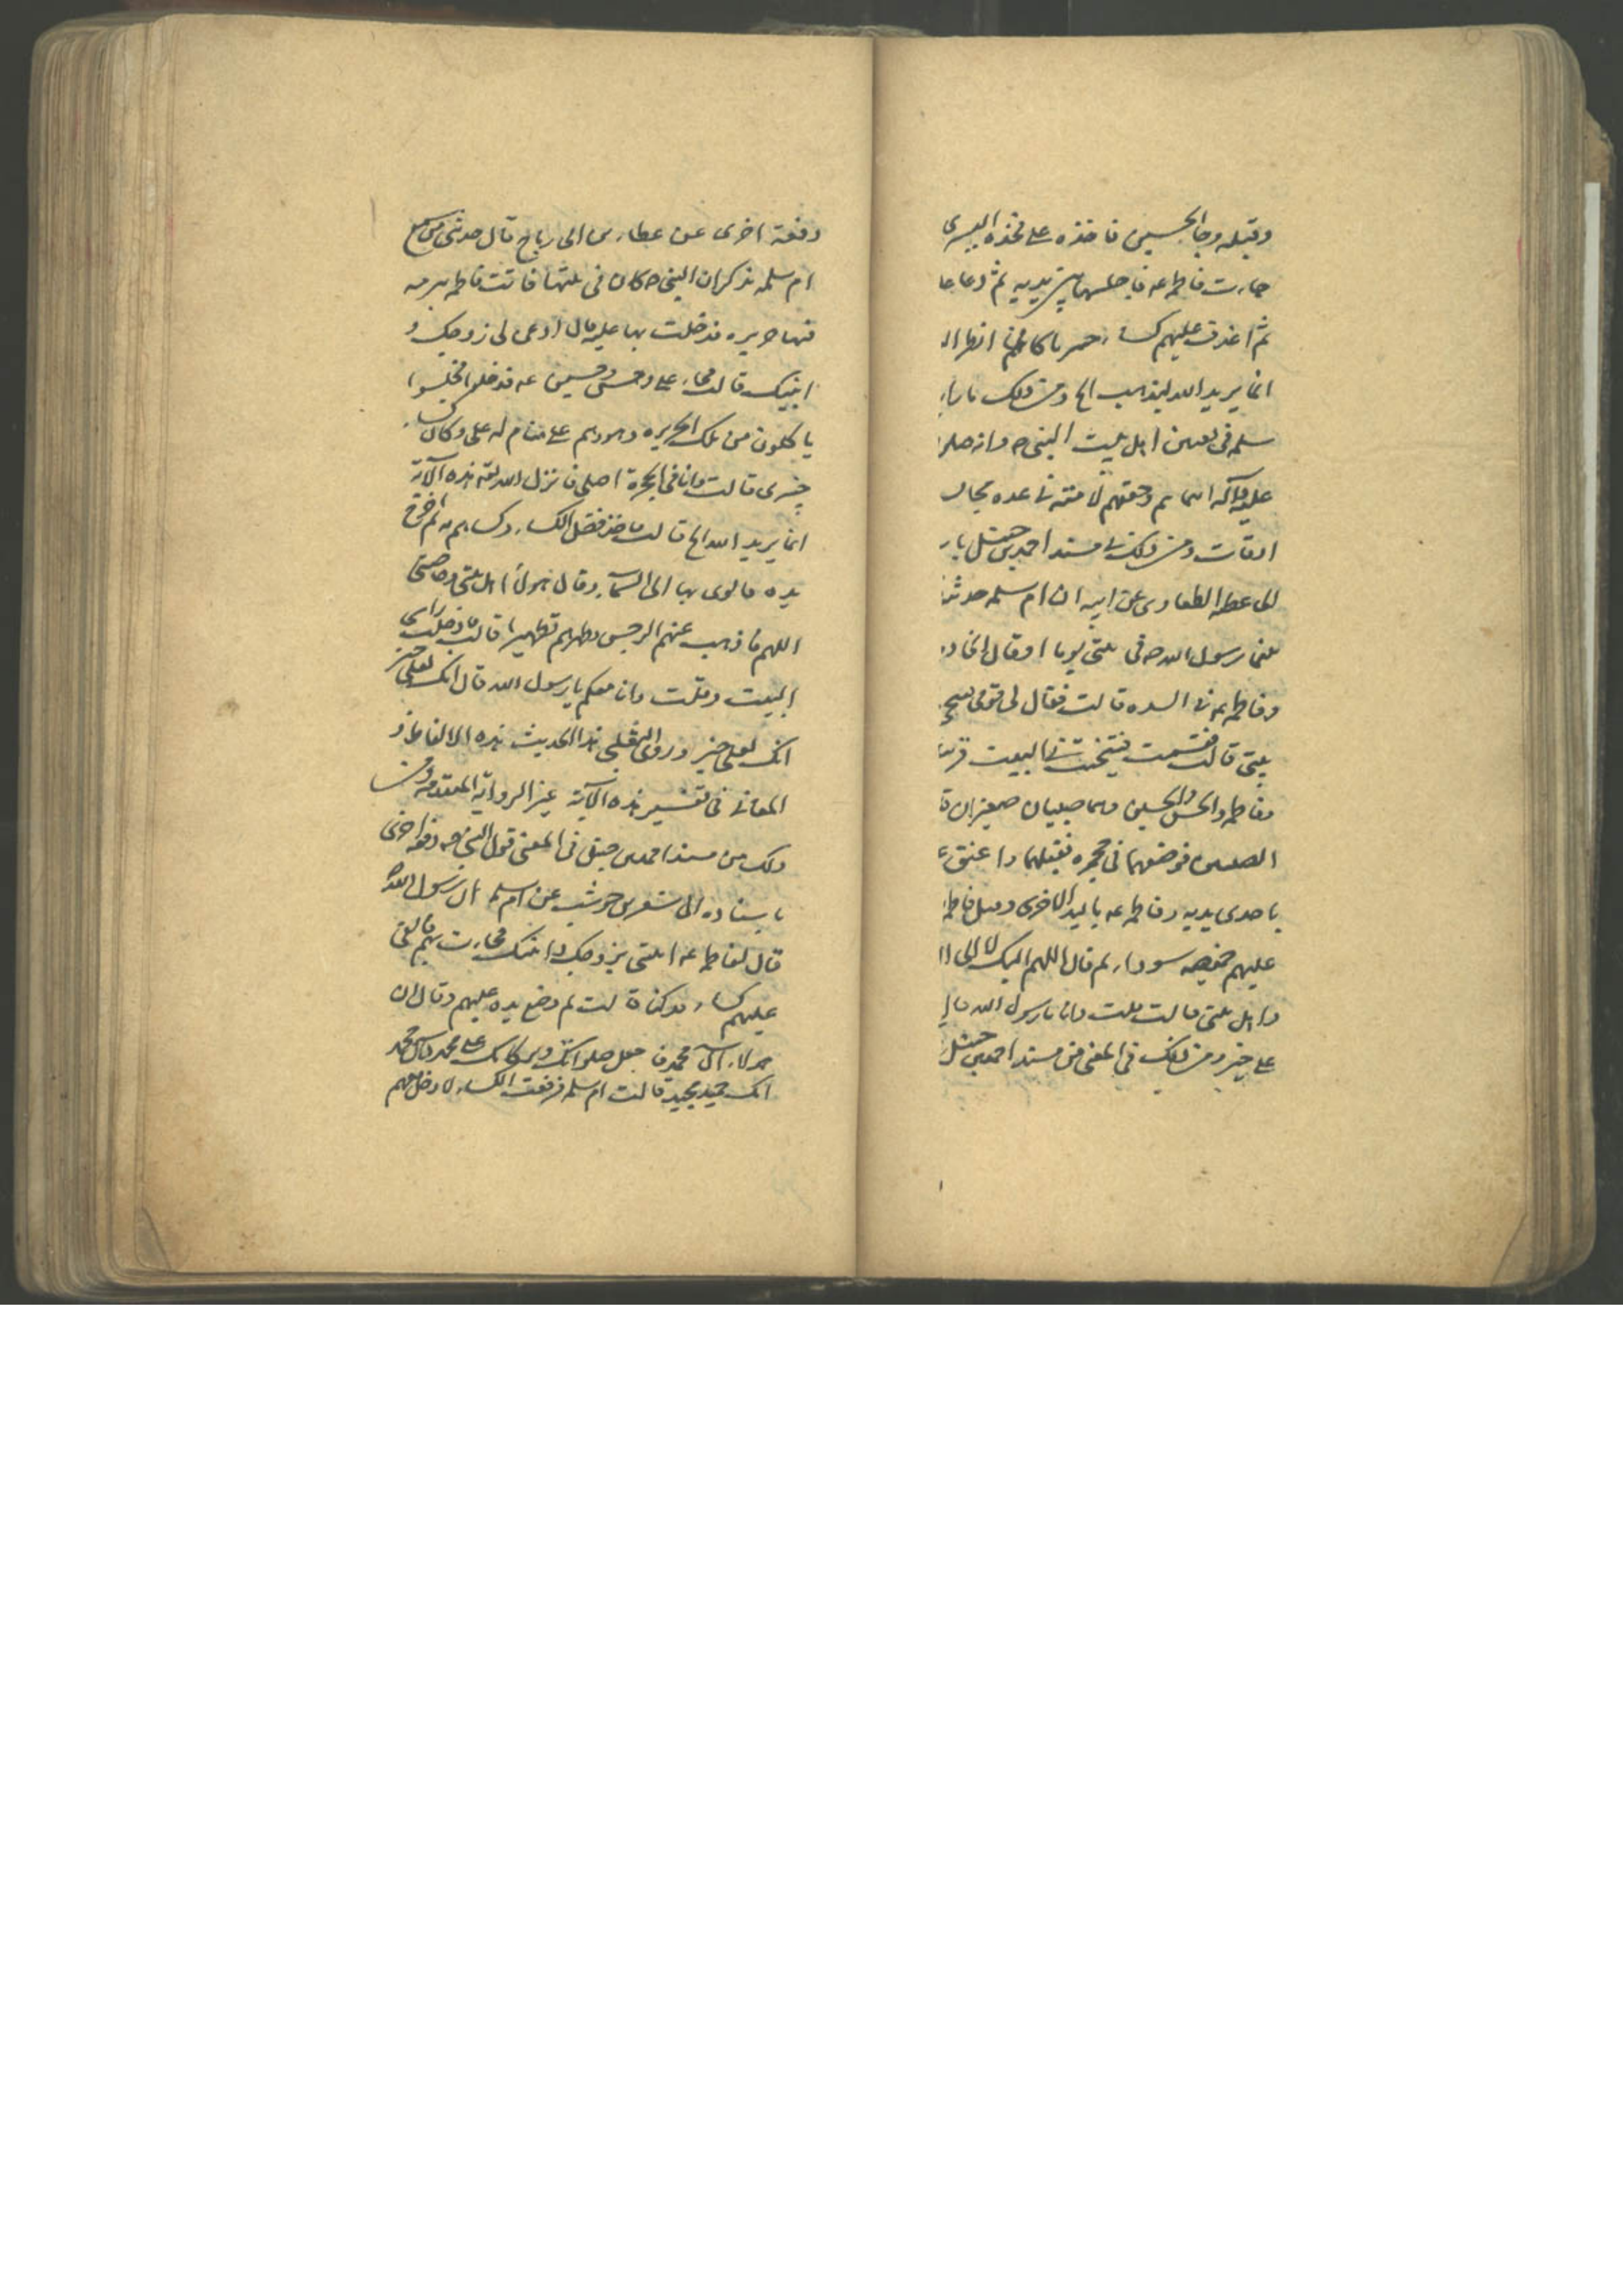 وقبله وجا الحسين فاخذه على فخذه اليسرى
جاءت فاطمه عه فاجلسها بين يديه ثم دعا
ثم اغدف عليهم كساء خيبريا كانى انظر
انما يريد الله ليذهب الخ ومن ذلك
سلمه فى تعيين اهل بيت النبى ص وانه صلى
عليه وآله اسماهم وحققهم لامته فى عده مجال
اوقات ومن ذلك فى مسند احمد بن حنبل
الى عطيه الطفاوى عن ابيه ان ام سلمه
بينما رسول الله ص فى بيتى يوما اذ قال
وفاطمه عه فى السده قالت فقال لى قومى
بيتى قالت فقمت فتنحيت فى البيت
وفاطمه والحسن والحسين وهما صبيان صغيران
الصبيين فوضعهما فى حجره فقبلهما واعتنق
باحدى يديه وفاطمه عه باليد الاخرى وقبل فاطمه
عليهم خميصه سوداء ثم قال اللهم اليك لا الى
واهل بيتى قالت قلت وانا يا رسول الله
على خير ومن ذلك فى المعنى من مسند احمد بن حنبل
دفعة اخرى عن عطاء بن ابى رباح قال حدثنى من سمع
ام سلمه تذكر ان النبى ص كان فى بيتها فاتت فاطمه ببرمه
فيها حريره فدخلت بها عليه قال ادعى لى زوجك و
ابنيك قالت فجاء على وحسن وحسين عه فدخلوا فجلسوا
ياكلون من تلك الحريره وهو وهم على منام له على دكان
خيبرى قالت وانا فى الحجرة اصلى فانزل الله تعه هذه الآية
انما يريد الله الخ قالت فاخذ فضل الكساء وكساهم به ثم اخرج
يده فالوى بها الى السماء وقال هولاء اهل بيتى وخاصتى
اللهم فاذهب عنهم الرجس وطهرهم تطهيرا قالت فادخلت راسى
البيت وقلت وانا معكم يا رسول الله قال انك لعلى خير
انك لعلى خير وروى الثعلبى هذا الحديث بهذه الالفاظ و
المعانى فى تفسير هذه الآية غير الرواية المتقدمه ومن
ذلك من مسند احمد بن حنبل فى المعنى قول النبى ص دفعه اخرى
باسناده الى شهر بن حوشب عن ام سلمه ان رسول الله ص
قال لفاطمه عه ايتنى بزوجك وابنيك فجاءت بهم فالقى
عليهم كساء فدكيا قالت ثم وضع يده عليهم وقال ان
هولاء آل محمد فاجعل صلواتك وبركاتك على محمد وآل محمد
انك حميد مجيد قالت ام سلمه فرفعت الكساء لادخل معهم